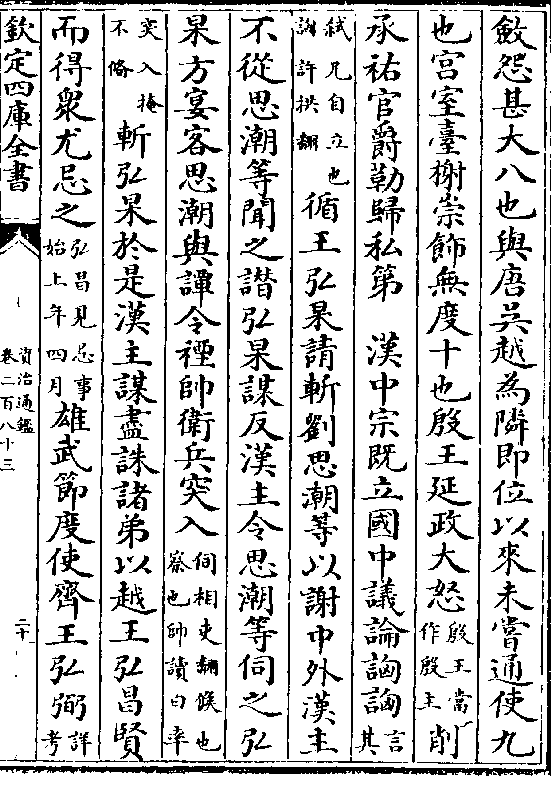 斂怨甚大八也與唐吳越為隣即位以來未嘗通使九
也宫室臺榭崇飾無度十也殷王延政大怒殷王當作殷主削
承祐官爵勒歸私第　漢中宗既立國中議論詾詾言其
弑兄自立也詾許拱翻循王弘杲請斬劉思潮等以謝中外漢主
不從思潮等聞之譖弘杲謀反漢主令思潮等伺之弘
杲方宴客思潮與譚令禋帥衛兵突入伺相吏翻候也察也帥讀曰率
突入掩不備斬弘杲於是漢主謀盡誅諸弟以越王弘昌賢
而得衆尤忌之弘昌見忌事始上年四月雄武節度使齊王弘弼詳考
欽定四庫全書
資治通鑑
卷二百八十三
二十